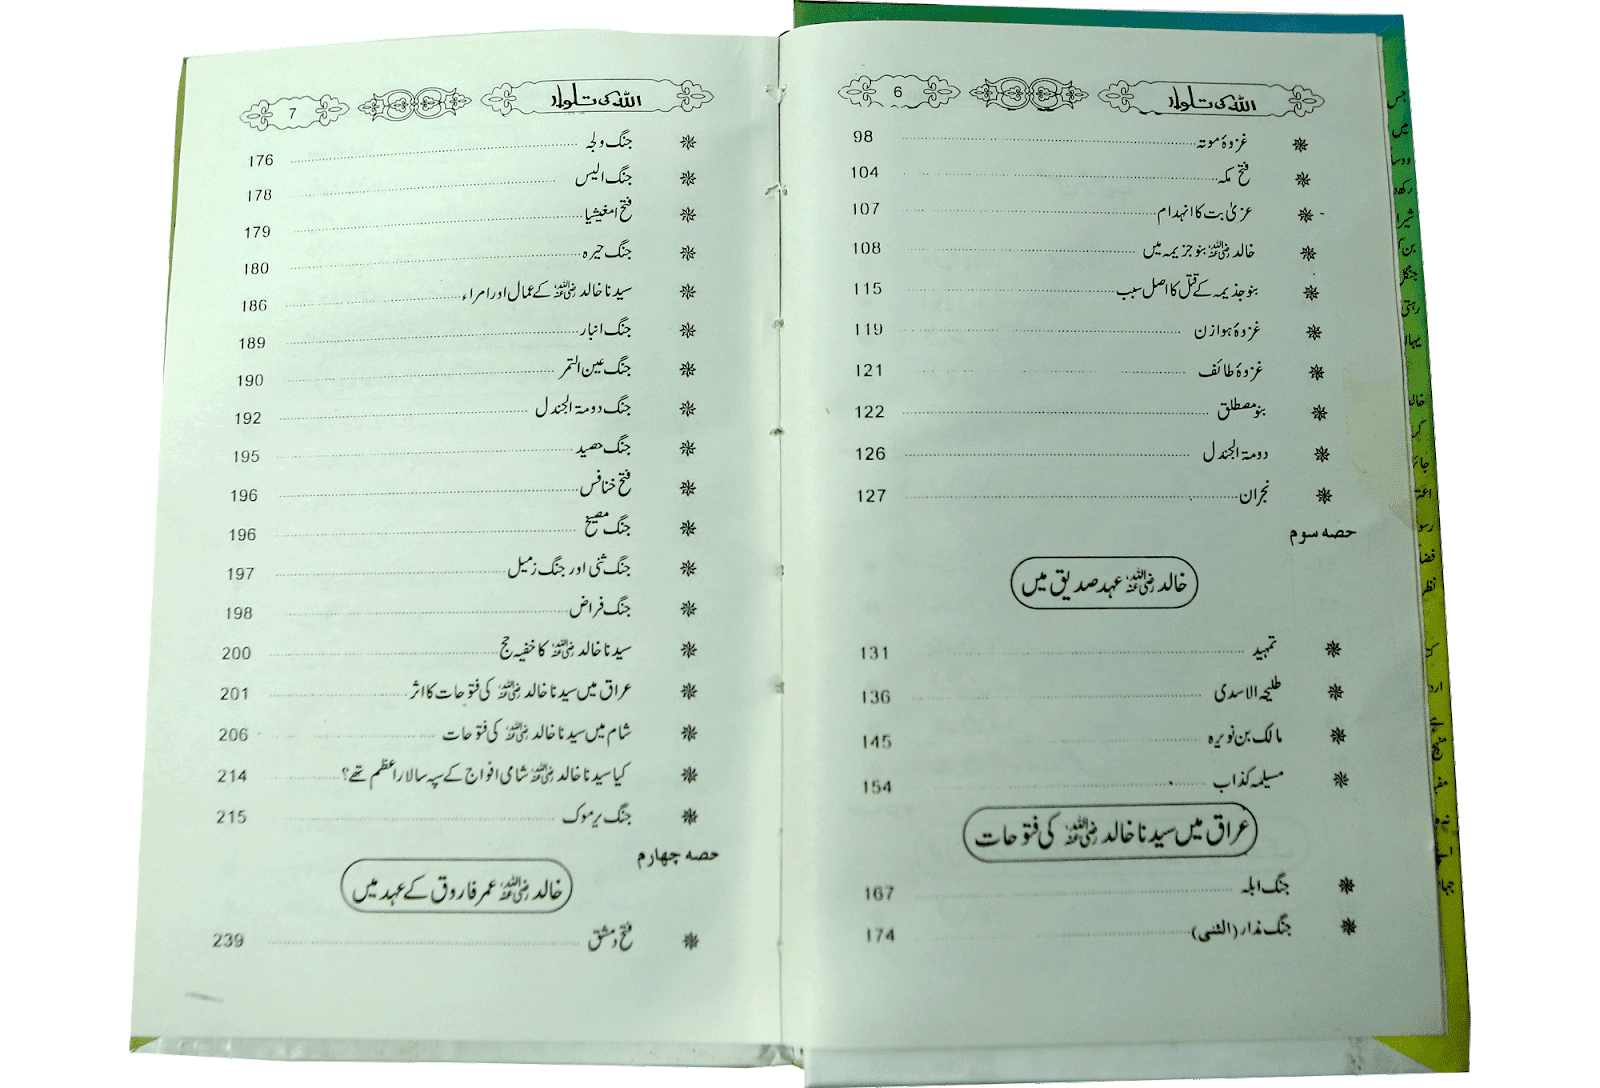 اللہ کی تلوار 6
غزوۂ موتہ 98
فتح مکہ 104
عزیٰ بت کا انہدام 107
خالد رضی اللہ عنہ بنو جزیمہ میں 108
بنو جذیمہ کے قتل کا اصل سبب 115
غزوۂ ہوازن 119
غزوۂ طائف 121
بنو مصطلق 122
دومۃ الجندل 126
نجران 127
حصہ سوم
خالد رضی اللہ عنہ عہد صدیق میں
تمہید 131
طلیحہ الاسدی 136
مالک بن نویرہ 145
مسیلمہ کذاب 154
عراق میں سیدنا خالد رضی اللہ عنہ کی فتوحات
جنگ ابلہ 167
جنگ مذار (الثنی) 174
اللہ کی تلوار 7
جنگ ولجہ 176
جنگ الیس 178
فتح امغیشیا 179
جنگ حیرہ 180
سیدنا خالد رضی اللہ عنہ کے عمال اور امراء 186
جنگ انبار 189
جنگ عین التمر 190
جنگ دومۃ الجندل 192
جنگ حصید 195
فتح خنافس 196
جنگ مصیخ 196
جنگ ثنی اور جنگ زمیل 197
جنگ فراض 198
سیدنا خالد رضی اللہ عنہ کا خفیہ حج 200
عراق میں سیدنا خالد رضی اللہ عنہ کی فتوحات کا اثر 201
شام میں سیدنا خالد رضی اللہ عنہ کی فتوحات 206
کیا سیدنا خالد رضی اللہ عنہ شامی افواج کے سپہ سالار اعظم تھے؟ 214
جنگ یرموک 215
حصہ چہارم
خالد رضی اللہ عنہ عمر فاروق کے عہد میں
فتح دمشق 239